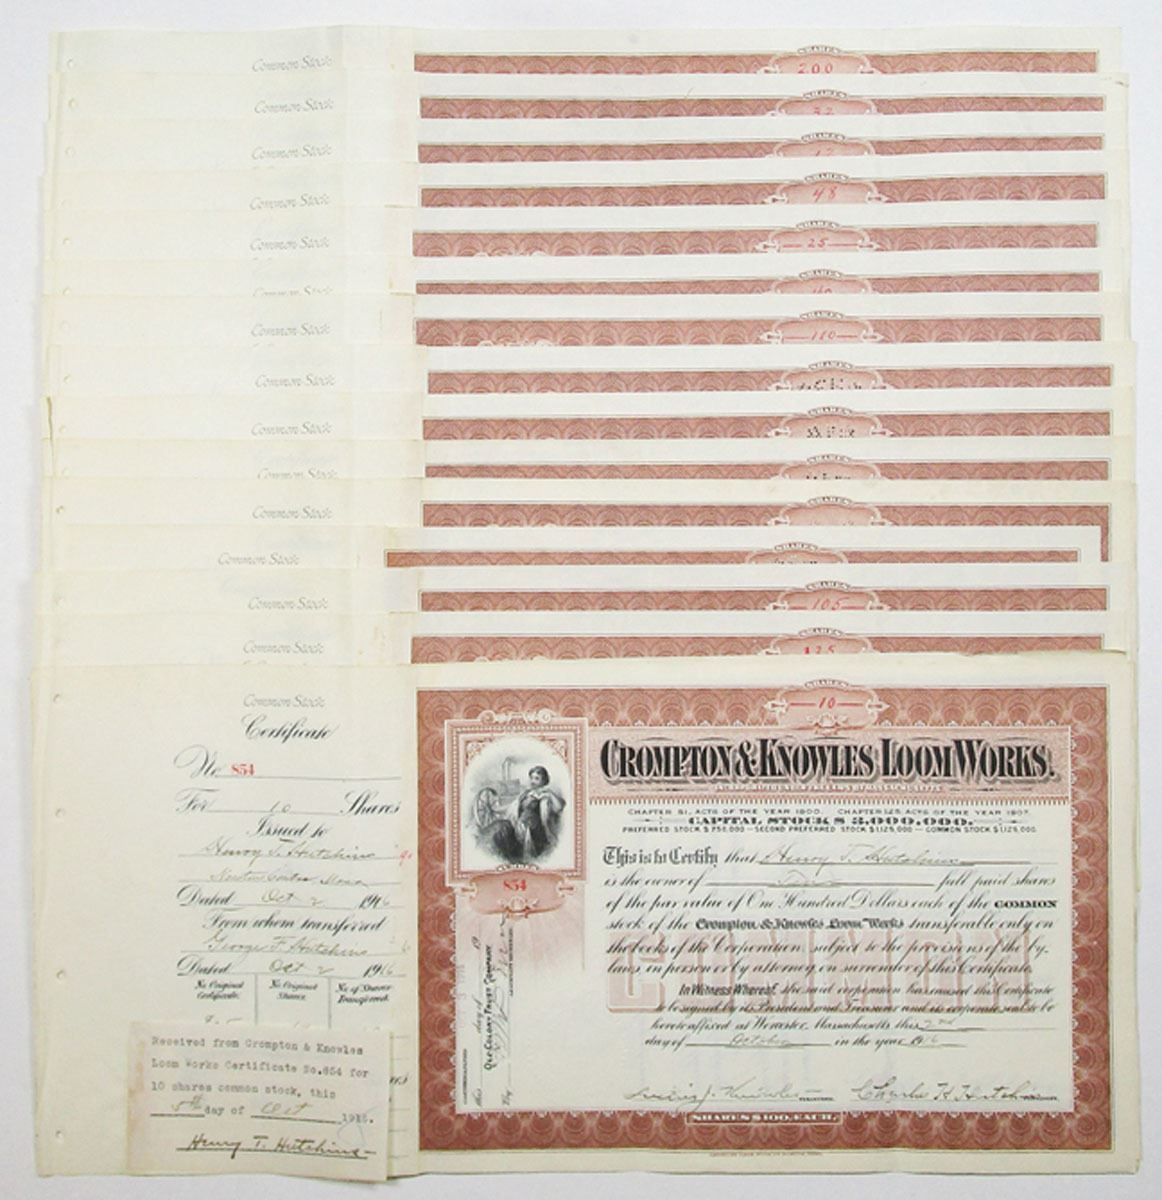 Common Stock
SHARES
200
Common Stock
SHARES
Common Stock
SHARES
Common Stock
SHARES
48
Common Stock
SHARES
25
Common Stock
SHARES
Common Stock
SHARES
110
Common Stock
SHARES
Common Stock
SHARES
Common Stock
SHARES
Common Stock
SHARES
Common Stock
SHARES
Common Stock
SHARES
105
Common Stock
SHARES
125
Common Stock
Certificate
No 854
For 10 Shares
Issued to
Henry T. Hutchins
Newton Centre, Mass
Dated Oct 2 1916
From whom transferred
George F. Hutchins
Dated Oct 2 1916
No. Original Certificate. No. Original Shares No. of Shares Transferred.
Received from Crompton & Knowles
Loom Works Certificate No.854 for
10 shares common stock, this
5th day of Oct 1916.
Henry T. Hutchins
SHARES
10
CROMPTON & KNOWLES LOOM WORKS.
CHAPTER 81, ACTS OF THE YEAR 1900. CHAPTER 125, ACTS OF THE YEAR 1907.
CAPITAL STOCK $ 3,000,000.
PREFERRED STOCK $ 750,000 — SECOND PREFERRED STOCK $ 1,125,000 — COMMON STOCK $ 1,125,000.
NUMBER
854
This is to Certify that Henry T. Hutchins
is the owner of Ten full paid shares
of the par value of One Hundred Dollars each of the COMMON
stock of the Crompton & Knowles Loom Works transferable only on
the books of the Corporation subject to the provisions of the by-
laws, in person or by attorney on surrender of this Certificate.
In Witness Whereof, the said corporation has caused this Certificate
to be signed by its President and Treasurer and its corporate seal to be
hereto affixed at Worcester, Massachusetts this 2nd
day of October in the year 1916
TREASURER.
Charles H. Hutchins
SHARES $100. EACH.
OLD COLONY TRUST COMPANY
day of 19
By